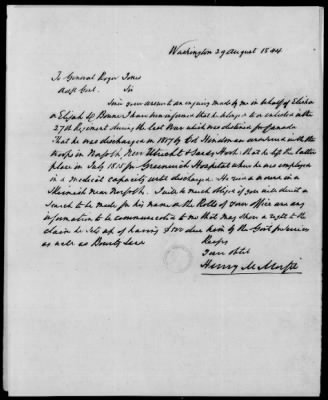 Washington 29 August 1844
To General Roger Jones
Adjt Genl. Sir
Since your answer to an inquiry made by me in behalf of Elisha
or Elijah C. Bonner I have been informed that he belonged to or enlisted in the
27th Regiment during the last War which was destined for Canada
That he was discharged in 1815 by Col. and served with the
troops in Norfolk, New Utrecht & Sandy Hook: that he left the latter
place in July 1815 for Greenwich Hospital where he was employed
in a medical capacity until discharged. He rec'd a wound in a
Skirmish near Norfolk. I will be much obliged if you will direct a
search to be made for his name on the Rolls of your office and any
information to be communicated to me that may show a right to the
claim he sets up of having $ due him by the Govt for services
as well as Bounty Land
Respy
Your obt
Henry M. Morfit